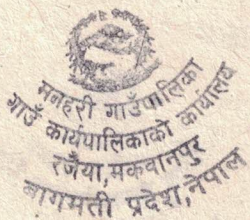 मनहरी गाउँपालिका
गाउँ कार्यपालिकाको कार्यालय
रजैया,मकवानपुर
बागमती प्रदेश,नेपाल